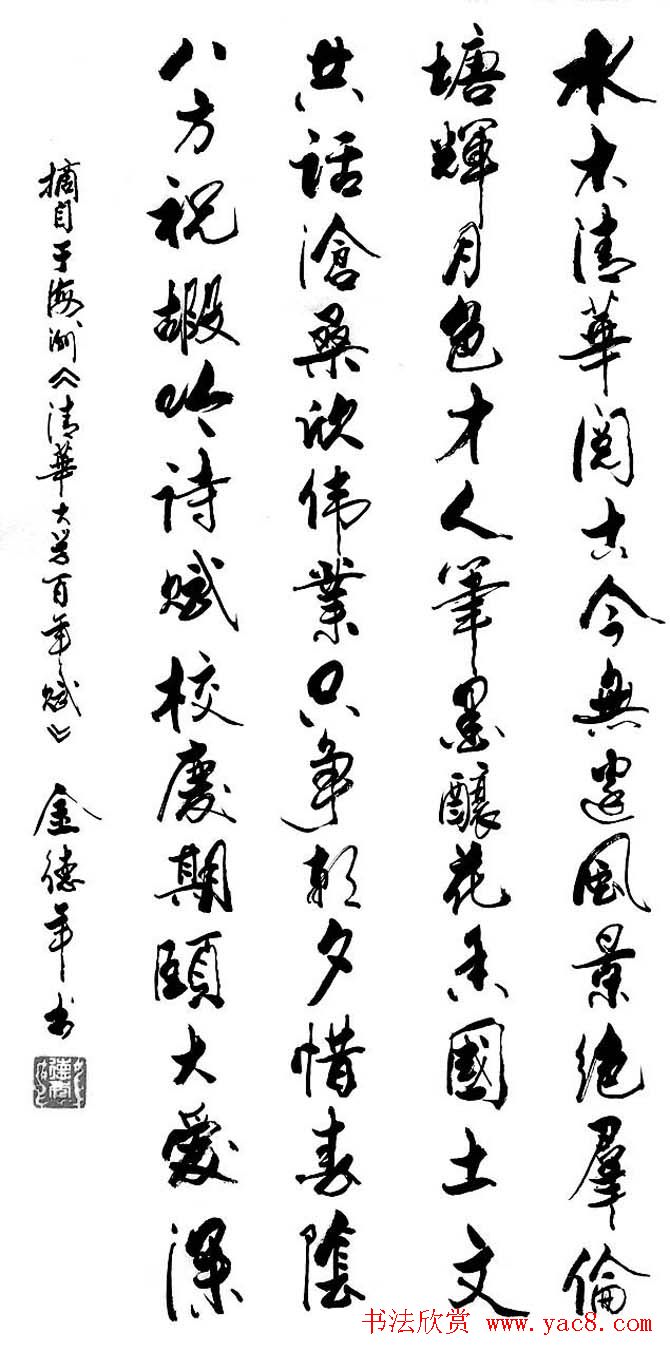 水木清華閱古今無邊風景絕羣倫
塘輝月色才人筆墨釀花香國土文
共話滄桑欣伟業只争朝夕惜春陰
八方祝嘏吟诗赋校慶期頤大愛深
摘自于海洲《清華大学百年赋》 金德年书
书法欣赏 www.yac8.com